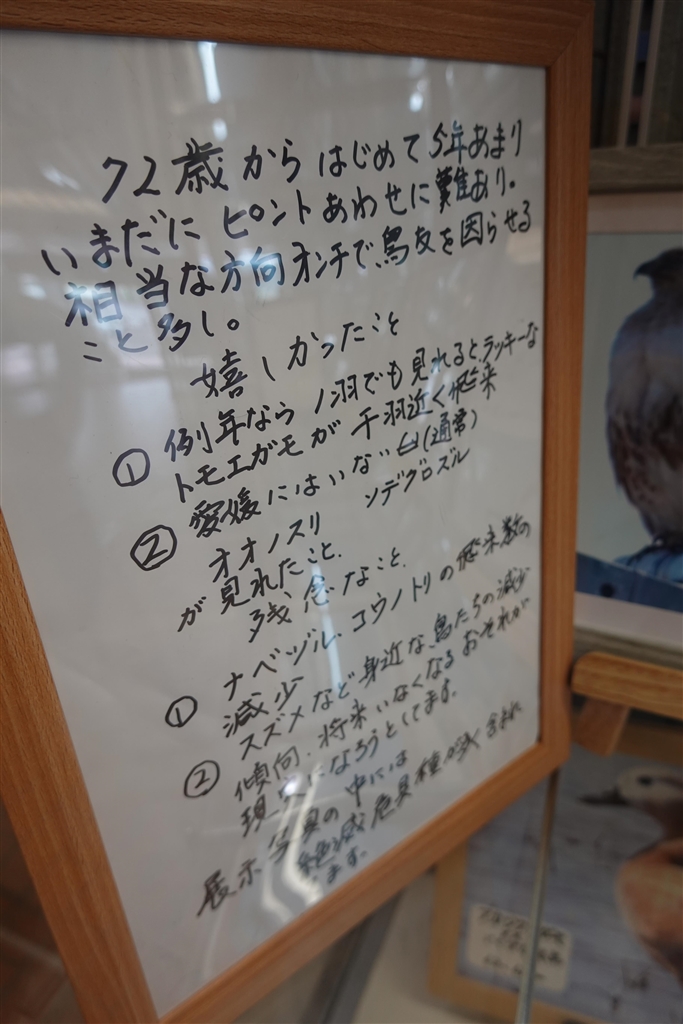 72歳からはじめて5年あまり
いまだにピントあわせに難あり。
相当な方向オンチで、鳥友を困らせる
こと多し。
嬉しかったこと
① 例年なら1羽でも見れると、ラッキーな
トモエガモが千羽近く飛来
② 愛媛にはいない(通常)
オオノスリ ソデグロズル
が見れたこと.
残念なこと.
① ナベヅル、コウノトリの飛来数の
減少
② スズメなど身近な鳥たちの減少
傾向、将来いなくなるおそれが
現実になろうとしてます.
展示写真の中には
絶滅危具種も多く含まれ
ます.